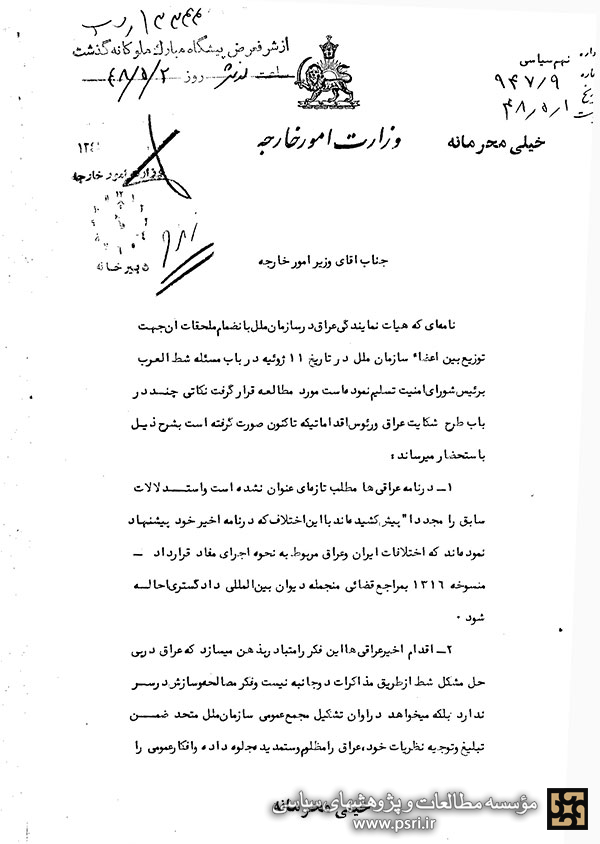 از شرفعرض پیشگاه مبارک ملوکانه گذشت
ساعت روز ۴۸/۵/۲
نهم سیاسی
۹۴۷/۹
۴۸/۵/۱
وزارت امور خارجه
خیلی محرمانه
وزارت امور خارجه
دبیرخانه
جناب اقای وزیر امور خارجه
نامه‌ای که هیات نمایندگی عراق در سازمان ملل با نضمام ملحقات ان جهت
توزیع بین اعضاء سازمان ملل در تاریخ ۱۱ ژوئیه در باب مسئله شط العرب
برئیس شورای امنیت تسلیم نموده‌است مورد مطالعه قرار گرفت نکاتی چند در
باب طرح شکایت عراق ورئوس اقداماتیکه تاکنون صورت گرفته است بشرح ذیل
باستحضار میرساند :
۱ـ در نامه عراقی ها مطلب تازه‌ای عنوان نشده است و استدلالات
سابق را مجددا" پیش کشیده‌اند با این اختلاف که در نامه اخیر خود پیشنهاد
نموده‌اند که اختلافات ایران و عراق مربوط به نحوه اجرای مفاد قرارداد ـ
منسوخه ۱۳۱۶ بمراجع قضائی منجمله دیوان بین‌المللی دادگستری احاله
شود .
۲ـ اقدام اخیر عراقی ها این فکر را متبادر بذهن میسازد که عراق در پی
حل مشکل شط از طریق مذاکرات دو جانبه نیست و فکر مصالحه و سازش در سر
ندارد بلکه میخواهد در اوان تشکیل مجمع عمومی سازمان ملل متحد ضمن
تبلیغ و توجیه نظریات خود، عراق را مظلوم وستمدیده جلوه داده و افکار عمومی را
خیلی محرمانه
مؤسسه مطالعات و پژوهشهای سیاسی
www.psri.ir